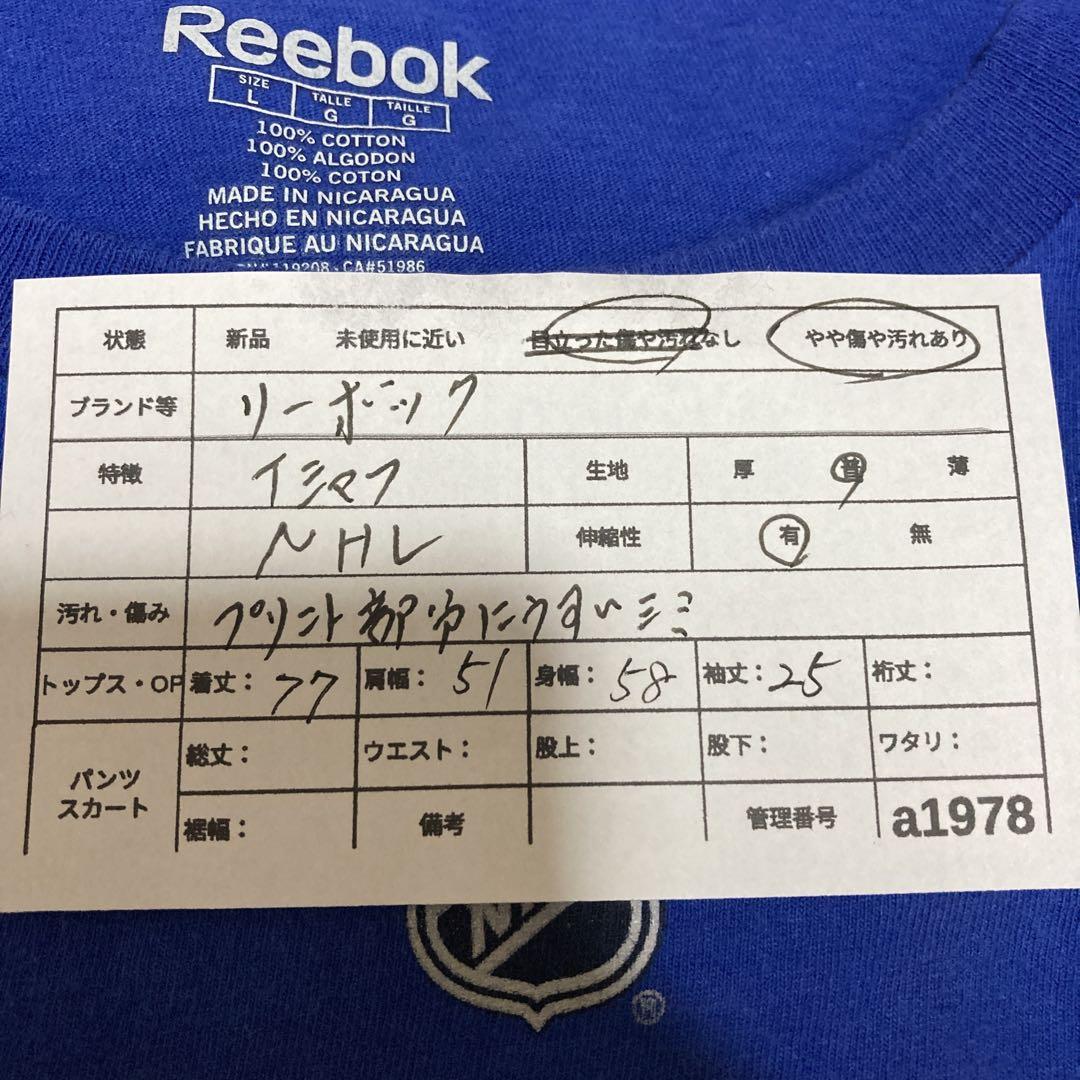 Reebok
SIZE TALLE TAILLE
L G G
100% COTTON
100% ALGODON
100% COTON
MADE IN NICARAGUA
HECHO EN NICARAGUA
FABRIQUE AU NICARAGUA
119208 - CA#51986
状態 新品 未使用に近い 目立った傷や汚れなし やや傷や汚れあり
ブランド等 リーボック
特徴 生地 厚 普 薄
NHL 伸縮性 有 無
汚れ・傷み プリント部分にうすいシミ
トップス・OP 着丈: 77 肩幅: 51 身幅: 58 袖丈: 25 裄丈:
パンツ スカート 総丈: ウエスト: 股上: 股下: ワタリ:
裾幅: 備考 管理番号 a1978
N